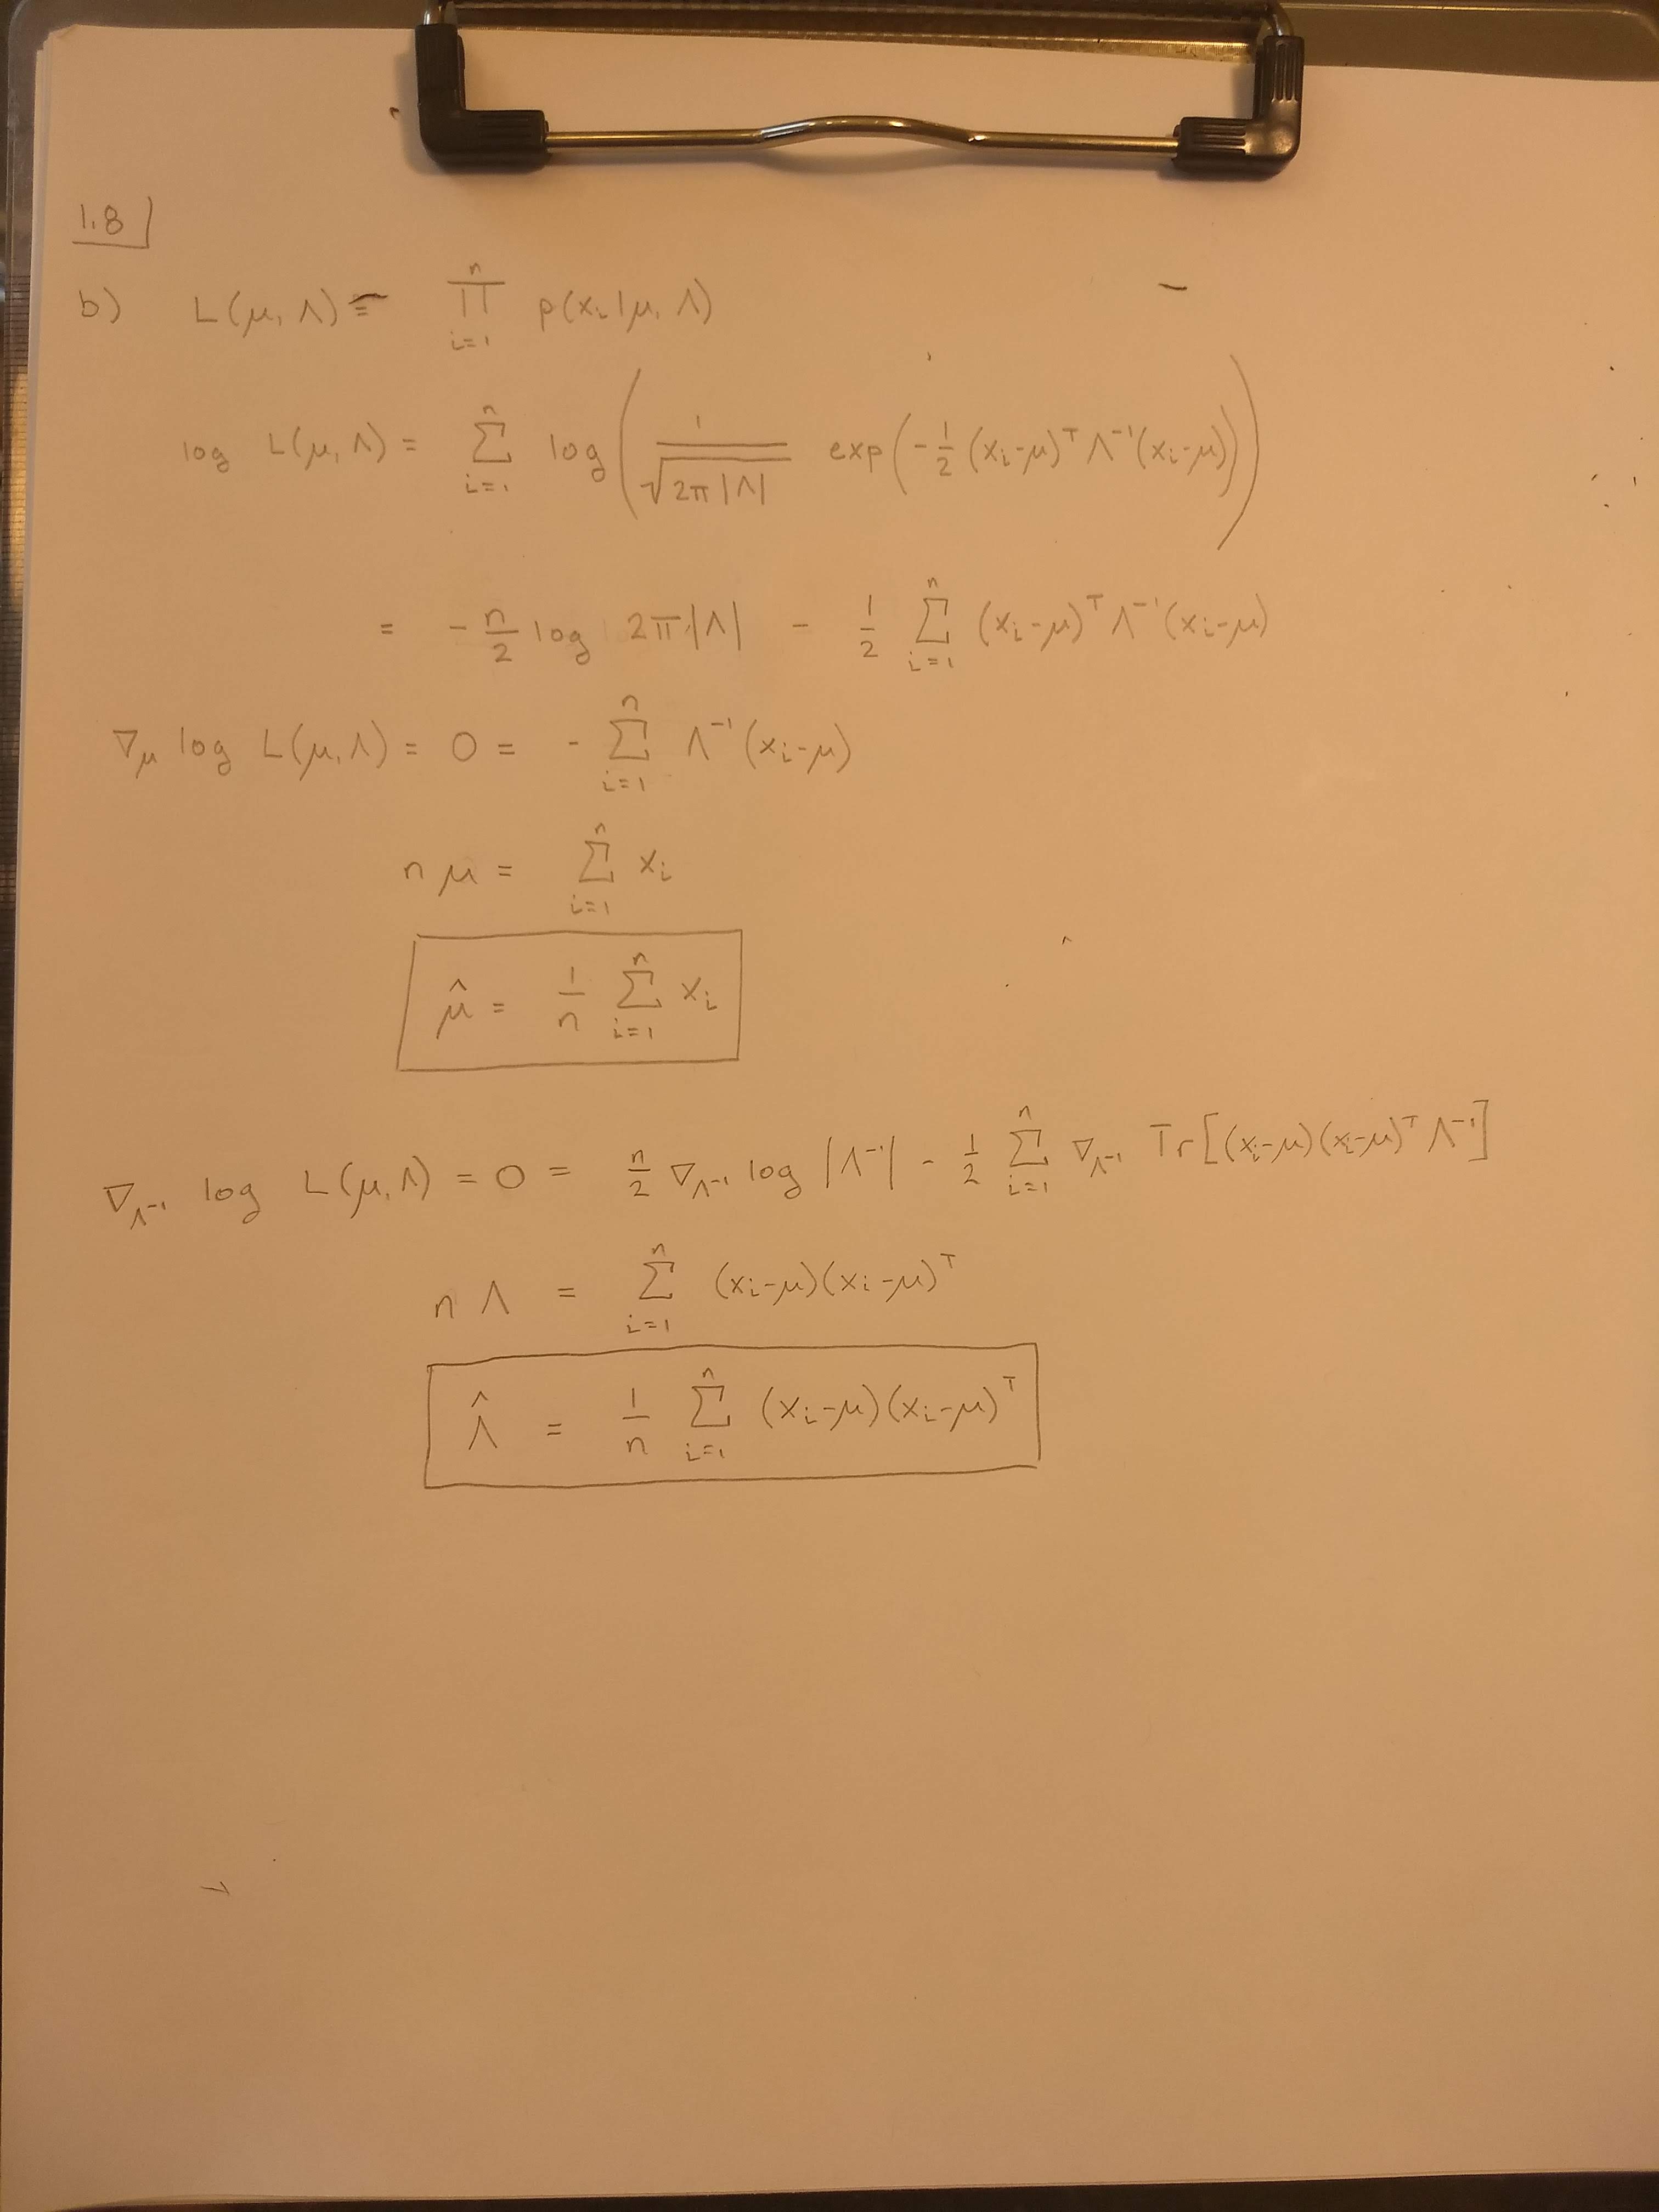 1.8
b) L(μ, Λ) = ∏_{i=1}^{n} p(x_i | μ, Λ)
log L(μ, Λ) = Σ_{i=1}^{n} log( 1/√(2π|Λ|) exp(-1/2 (x_i-μ)^T Λ^{-1} (x_i-μ)) )
= - n/2 log 2π|Λ| - 1/2 Σ_{i=1}^{n} (x_i-μ)^T Λ^{-1} (x_i-μ)
∇_μ log L(μ, Λ) = 0 = - Σ_{i=1}^{n} Λ^{-1} (x_i-μ)
n μ = Σ_{i=1}^{n} x_i
μ̂ = 1/n Σ_{i=1}^{n} x_i
∇_{Λ^{-1}} log L(μ, Λ) = 0 = n/2 ∇_{Λ^{-1}} log |Λ^{-1}| - 1/2 Σ_{i=1}^{n} ∇_{Λ^{-1}} Tr[(x_i-μ)(x_i-μ)^T Λ^{-1}]
n Λ = Σ_{i=1}^{n} (x_i-μ)(x_i-μ)^T
Λ̂ = 1/n Σ_{i=1}^{n} (x_i-μ)(x_i-μ)^T